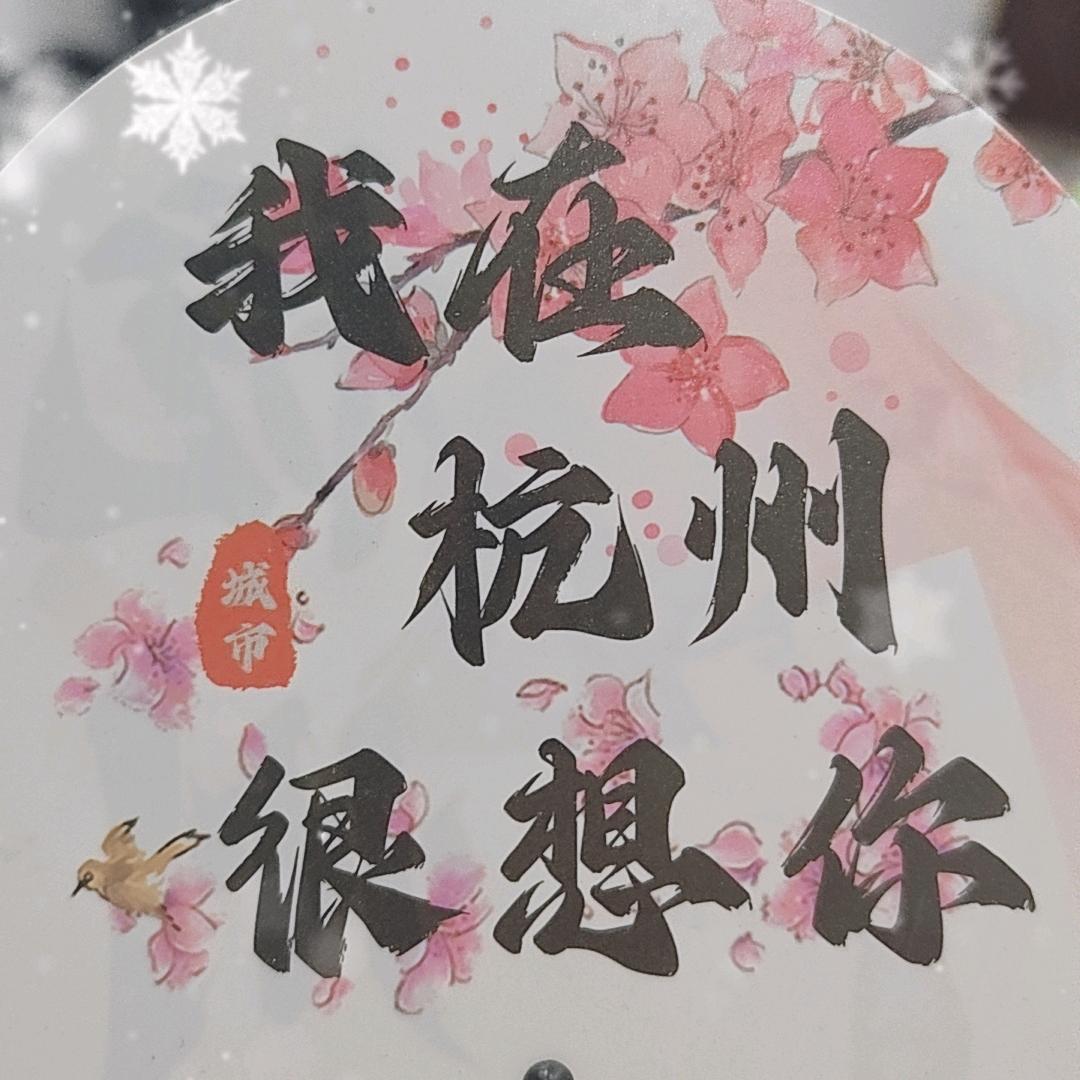 我在
杭州
城市
很想你